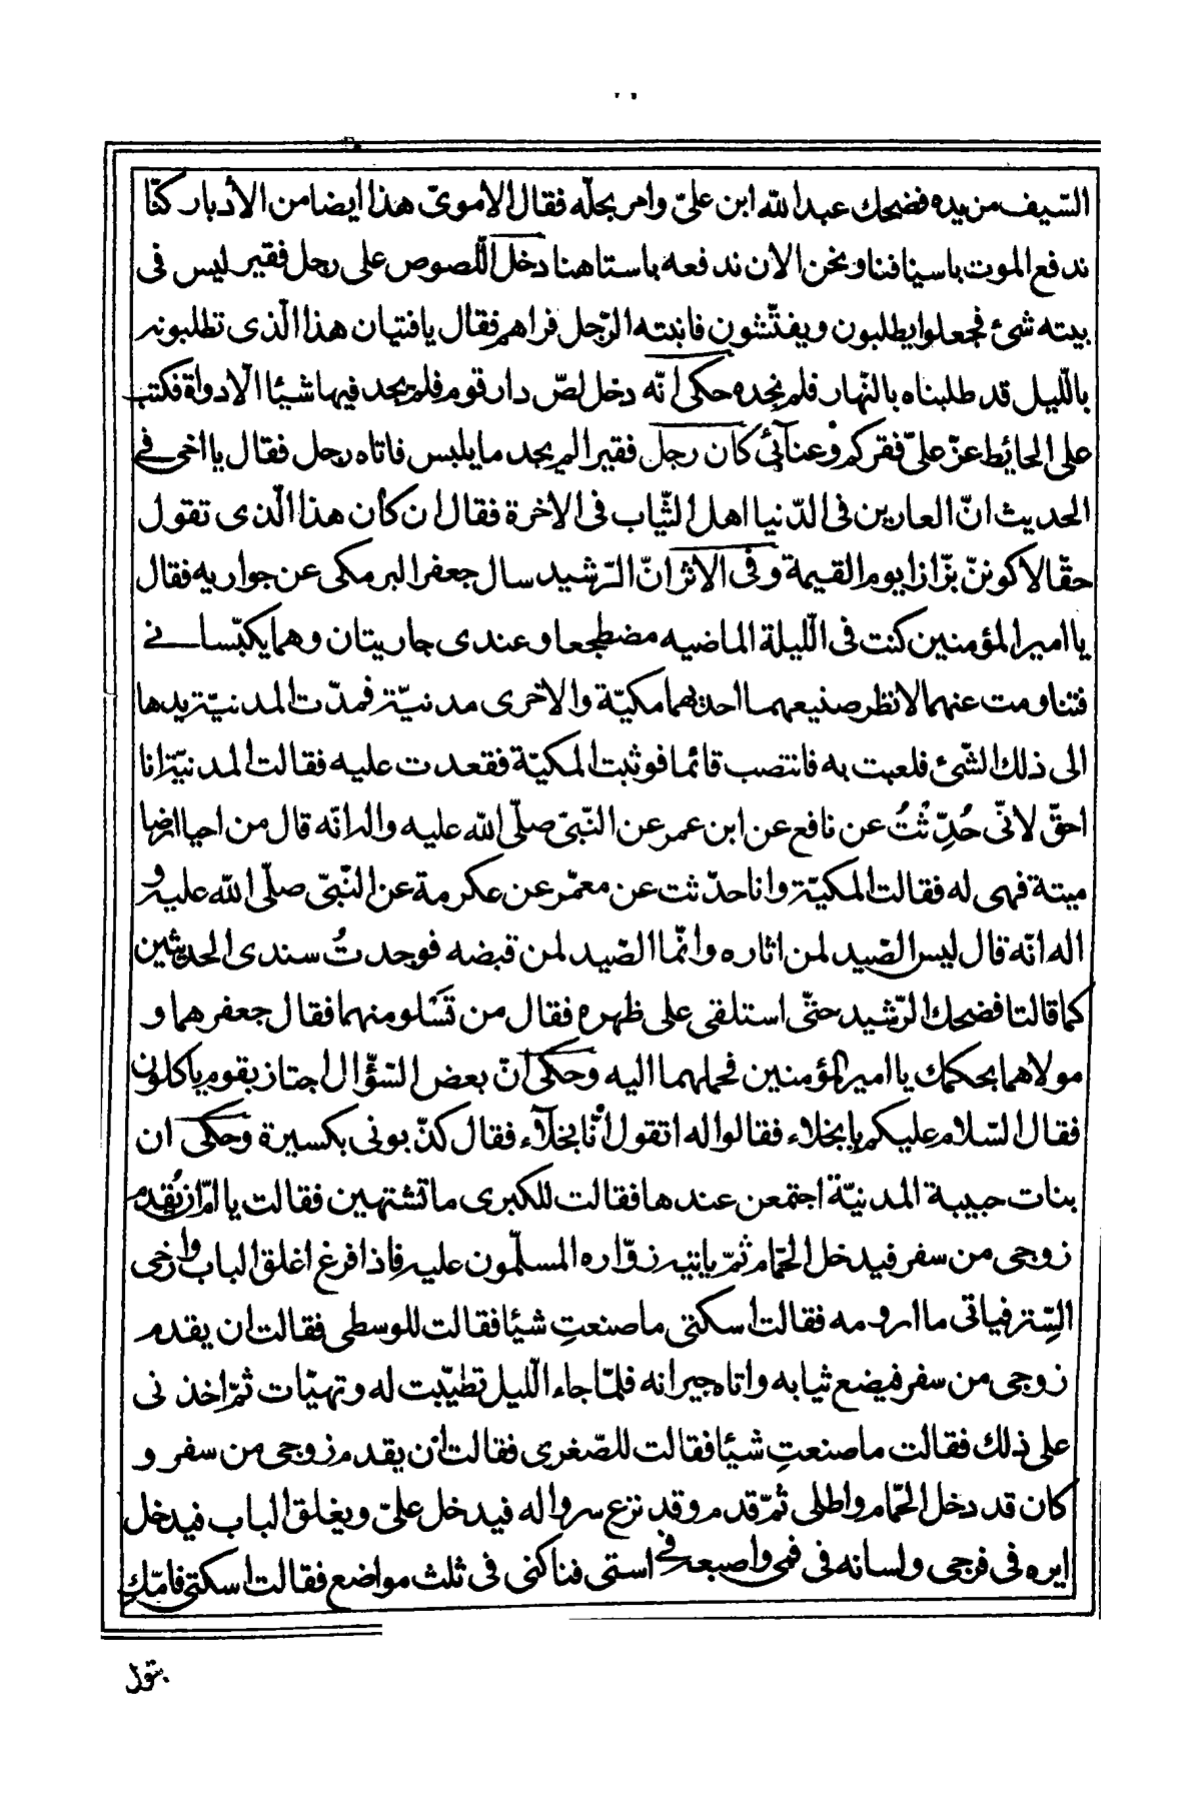 السّيف من يده فضحك عبد الله ابن علىّ وامر بحلّه فقال الاموىّ هذا ايضا من الأدبار كنّا
ندفع الموت باسيافنا ونحن الان ندفعه باستاهنا دخل اللّصوص على رجل فقير ليس فى
بيته شئ فجعلوا يطلبون ويفتّشون فانتبه الرّجل فراهم فقال يا فتيان هذا الّذى تطلبونه
باللّيل قد طلبناه بالنّهار فلم نجده حكى انّه دخل لصّ دار قوم فلم يجد فيها شيئا الّا دواة فكتب
على الحائط عزّ علىّ فقركم وعنائى كان رجل فقيرا لم يجد ما يلبس فاتاه رجل فقال يا اخى فى
الحديث انّ العارين فى الدّنيا اهل الثّياب فى الاخرة فقال ان كان هذا الّذى تقول
حقّا لاكوننّ بزّازا يوم القيمة وفى الاثر انّ الرّشيد سال جعفر البرمكى عن جواريه فقال
يا امير المؤمنين كنت فى اللّيلة الماضيه مضطجعا وعندى جاريتان وهما يكبّسانى
فتناومت عنهما لانظر صنيعهما احديهما مكيّة والاخرى مدنيّة فمدّت المدنيّة يدها
الى ذلك الشّئ فلعبت به فانتصب قائما فوثبت المكيّة فقعدت عليه فقالت المدنيّة انا
احقّ لانّى حُدِّثْتُ عن نافع عن ابن عمر عن النّبىّ صلّى الله عليه واله انّه قال من احيا ارضا
ميتة فهى له فقالت المكيّة وانا حدّثت عن معمّر عن عكرمة عن النّبىّ صلّى الله عليه و
اله انّه قال ليس الصّيد لمن اثاره وانّما الصّيد لمن قبضه فوجدتُ سندى الحديثين
كما قالتا فضحك الرّشيد حتّى استلقى على ظهره فقال من تَسْلو منهما فقال جعفر هما و
مولاهما بحكمك يا امير المؤمنين فحملهما اليه وحكى انّ بعض السّؤّال اجتاز بقوم ياكلون
فقال السّلام عليكم يا بخلاء فقالوا له اتقول انّا بخلاء فقال كذّبونى بكسيرة وحكى ان
بنات حبيبة المدنيّة اجتمعن عندها فقالت للكبرى ما تشتهين فقالت يا امّاه ان يَقدم
زوجى من سفر فيدخل الحمّام ثمّ ياتيه زوّاره المسلّمون عليه فاذا فرغ اغلق الباب وارخى
السّتر فياتى ما ارومه فقالت اسكتى ما صنعتِ شيئا فقالت للوسطى فقالت ان يقدم
زوجى من سفر فيضع ثيابه واتاه جيرانه فلمّا جاء اللّيل تطيّبت له وتهيّات ثمّ اخذنى
على ذلك فقالت ما صنعتِ شيئا فقالت للصّغرى فقالت ان يقدم زوجى من سفر و
كان قد دخل الحمّام واطلى ثمّ قدم وقد نزع سرواله فيدخل علىّ ويغلق الباب فيدخل
ايره فى فرجى ولسانه فى فمى واصبعه فى استى فناكنى فى ثلث مواضع فقالت اسكتى فامّك
بتول